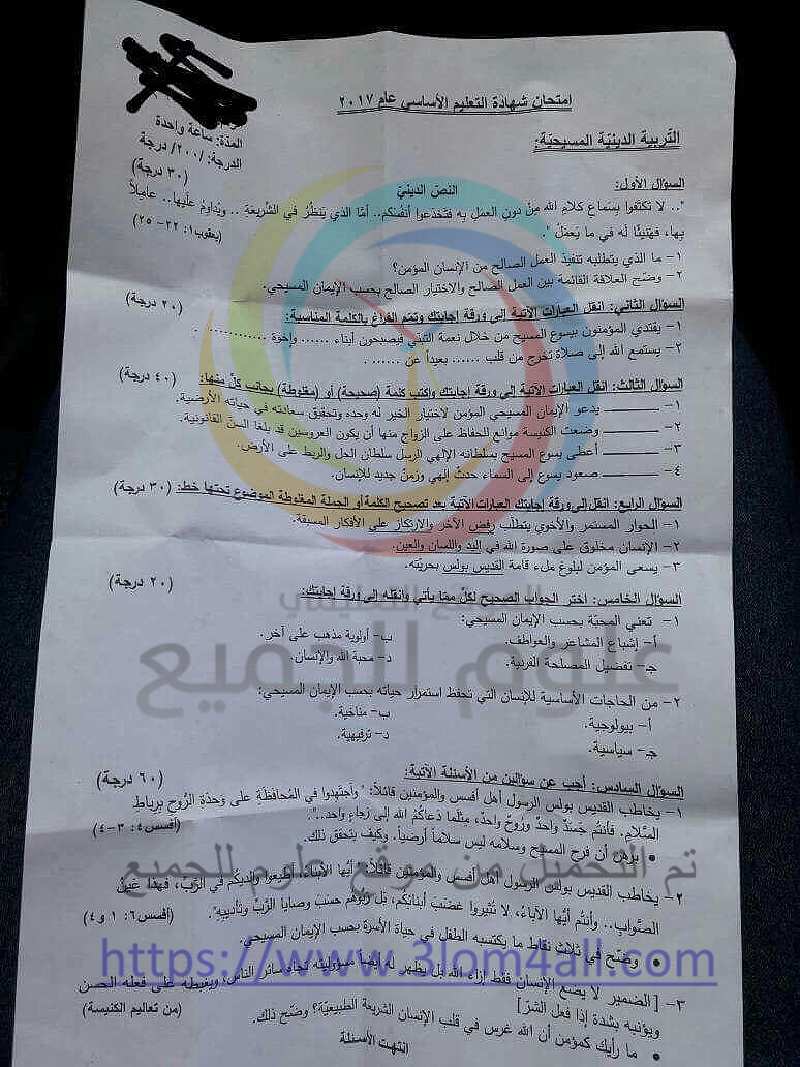 امتحان شهادة التعليم الأساسي عام ٢٠١٧
المدّة: ساعة واحدة
التربية الدينيّة المسيحيّة:
الدرجة: /٢٠٠/ درجة
السؤال الأول: (٣٠ درجة)
النص الدينيّ
".. لا تكتفوا بسَماعِ كلامِ الله مِنْ دونِ العملِ به فتَخدَعوا أنفُسَكم.. أمّا الذي يَنظُرُ في الشّريعَةِ .. ويُداوِمُ علَيها.. عامِلاً
بِها، فهَنيئًا لَه في ما يَعمَلُ ". (يعقوب١: ٢٢- ٢٥)
١- ما الذي يتطلبه تنفيذ العمل الصالح من الإنسان المؤمن؟
٢- وضّح العلاقة القائمة بين العمل الصالح والاختبار الصالح بحسب الإيمان المسيحي.
السؤال الثاني: انقل العبارات الآتية إلى ورقة إجابتك وتمم الفراغ بالكلمة المناسبة: (٢٠ درجة)
١- يقتدي المؤمنون بيسوع المسيح من خلال نعمة التبنّي فيصبحون أبناء ...... وإخوة ............ .
٢- يستمع الله إلى صلاة تخرج من قلب ...... بعيداً عن ...... .
السؤال الثالث: انقل العبارات الآتية إلى ورقة إجابتك واكتب كلمة (صحيحة) أو (مغلوطة) بجانب كلّ منها: (٤٠ درجة)
١- ـــــــــ يدعو الإيمان المسيحي المؤمن لاختيار الخير له وحده وتحقيق سعادته في حياته الأرضية.
٢- ـــــــــ وضعت الكنيسة موانع للحفاظ على الزواج منها أن يكون العروسين قد بلغا السنّ القانونية.
٣- ـــــــــ أعطى يسوع المسيح بسلطانه الإلهي الرسل سلطان الحل والربط على الأرض.
٤- ـــــــــ صعود يسوع إلى السماء حدثٌ إلهي وزمنٌ جديد للإنسان.
السؤال الرابع: انقل إلى ورقة إجابتك العبارات الآتية بعد تصحيح الكلمة أو الجملة المغلوطة الموضوع تحتها خط: (٣٠ درجة)
١- الحوار المستمر والأخوي يتطلّب رفض الآخر والارتكاز على الأفكار المسبقة.
٢- الإنسان مخلوق على صورة الله في اليد واللسان والعين.
٣- يسعى المؤمن لبلوغ ملء قامة القديس بولس بحريّته.
السؤال الخامس: اختر الجواب الصحيح لكلّ ممّا يأتي وانقله إلى ورقة إجابتك: (٢٠ درجة)
الموقع التعليمي
علوم للجميع
١- تعني المحبّة بحسب الإيمان المسيحي:
أ- إشباع المشاعر والعواطف. ب- أولوية مذهب على آخر.
ج- تفضيل المصلحة الفردية. د- محبة الله والإنسان.
٢- من الحاجات الأساسية للإنسان التي تحفظ استمرار حياته بحسب الإيمان المسيحي:
أ- بيولوجية. ب- مناخية.
ج- سياسية. د- ترفيهية.
السؤال السادس: أجب عن سؤالين من الأسئلة الآتية: (٦٠ درجة)
١- يخاطب القديس بولس الرسول أهل أفسس والمؤمنين قائلاً: " واجتهِدوا في المُحافَظَةِ على وَحدَةِ الرّوحِ بِرباطِ
السَّلامِ. فأنتُم جَسَدٌ واحدٌ وروحٌ واحدٌ، مِثلَما دَعاكُمُ الله إلى رَجاءٍ واحد..". (أفسس٤: ٣-٤)
• برهن أن فرح المسيح وسلامه ليس سلاماً أرضياً. وكيف يتحقق ذلك.
تم التحميل من موقع علوم للجميع
٢- يخاطب القديس بولس الرسول أهل أفسس والمؤمنين قائلاً: " أيُّها الأبناءُ، أطيعوا والِديكُم في الرّبِّ، فهذا عَينُ
الصَّوابِ.. وأنتُم أيُّها الآباءُ، لا تُثيروا غضَبَ أبنائِكُم، بَل رَبّوهُم حسَبَ وصايا الرّبِّ وتأديبِهِ". (أفسس٦: ١ و٤)
• وضّح في ثلاث نقاط ما يكتسبه الطفل في حياة الأسرة بحسب الإيمان المسيحي.
https://www.3lom4all.com
٣- [ الضمير لا يضع الإنسان فقط إزاء الله بل يظهر له أيضاً مسؤوليته تجاه سائر الناس، ويغبطه على فعله الحسن
ويؤنبه بشدة إذا فعل الشرّ ] (من تعاليم الكنيسة)
• ما رأيك كمؤمن أن الله غرس في قلب الإنسان الشريعة الطبيعيّة؟ وضّح ذلك.
انتهت الأسئلة